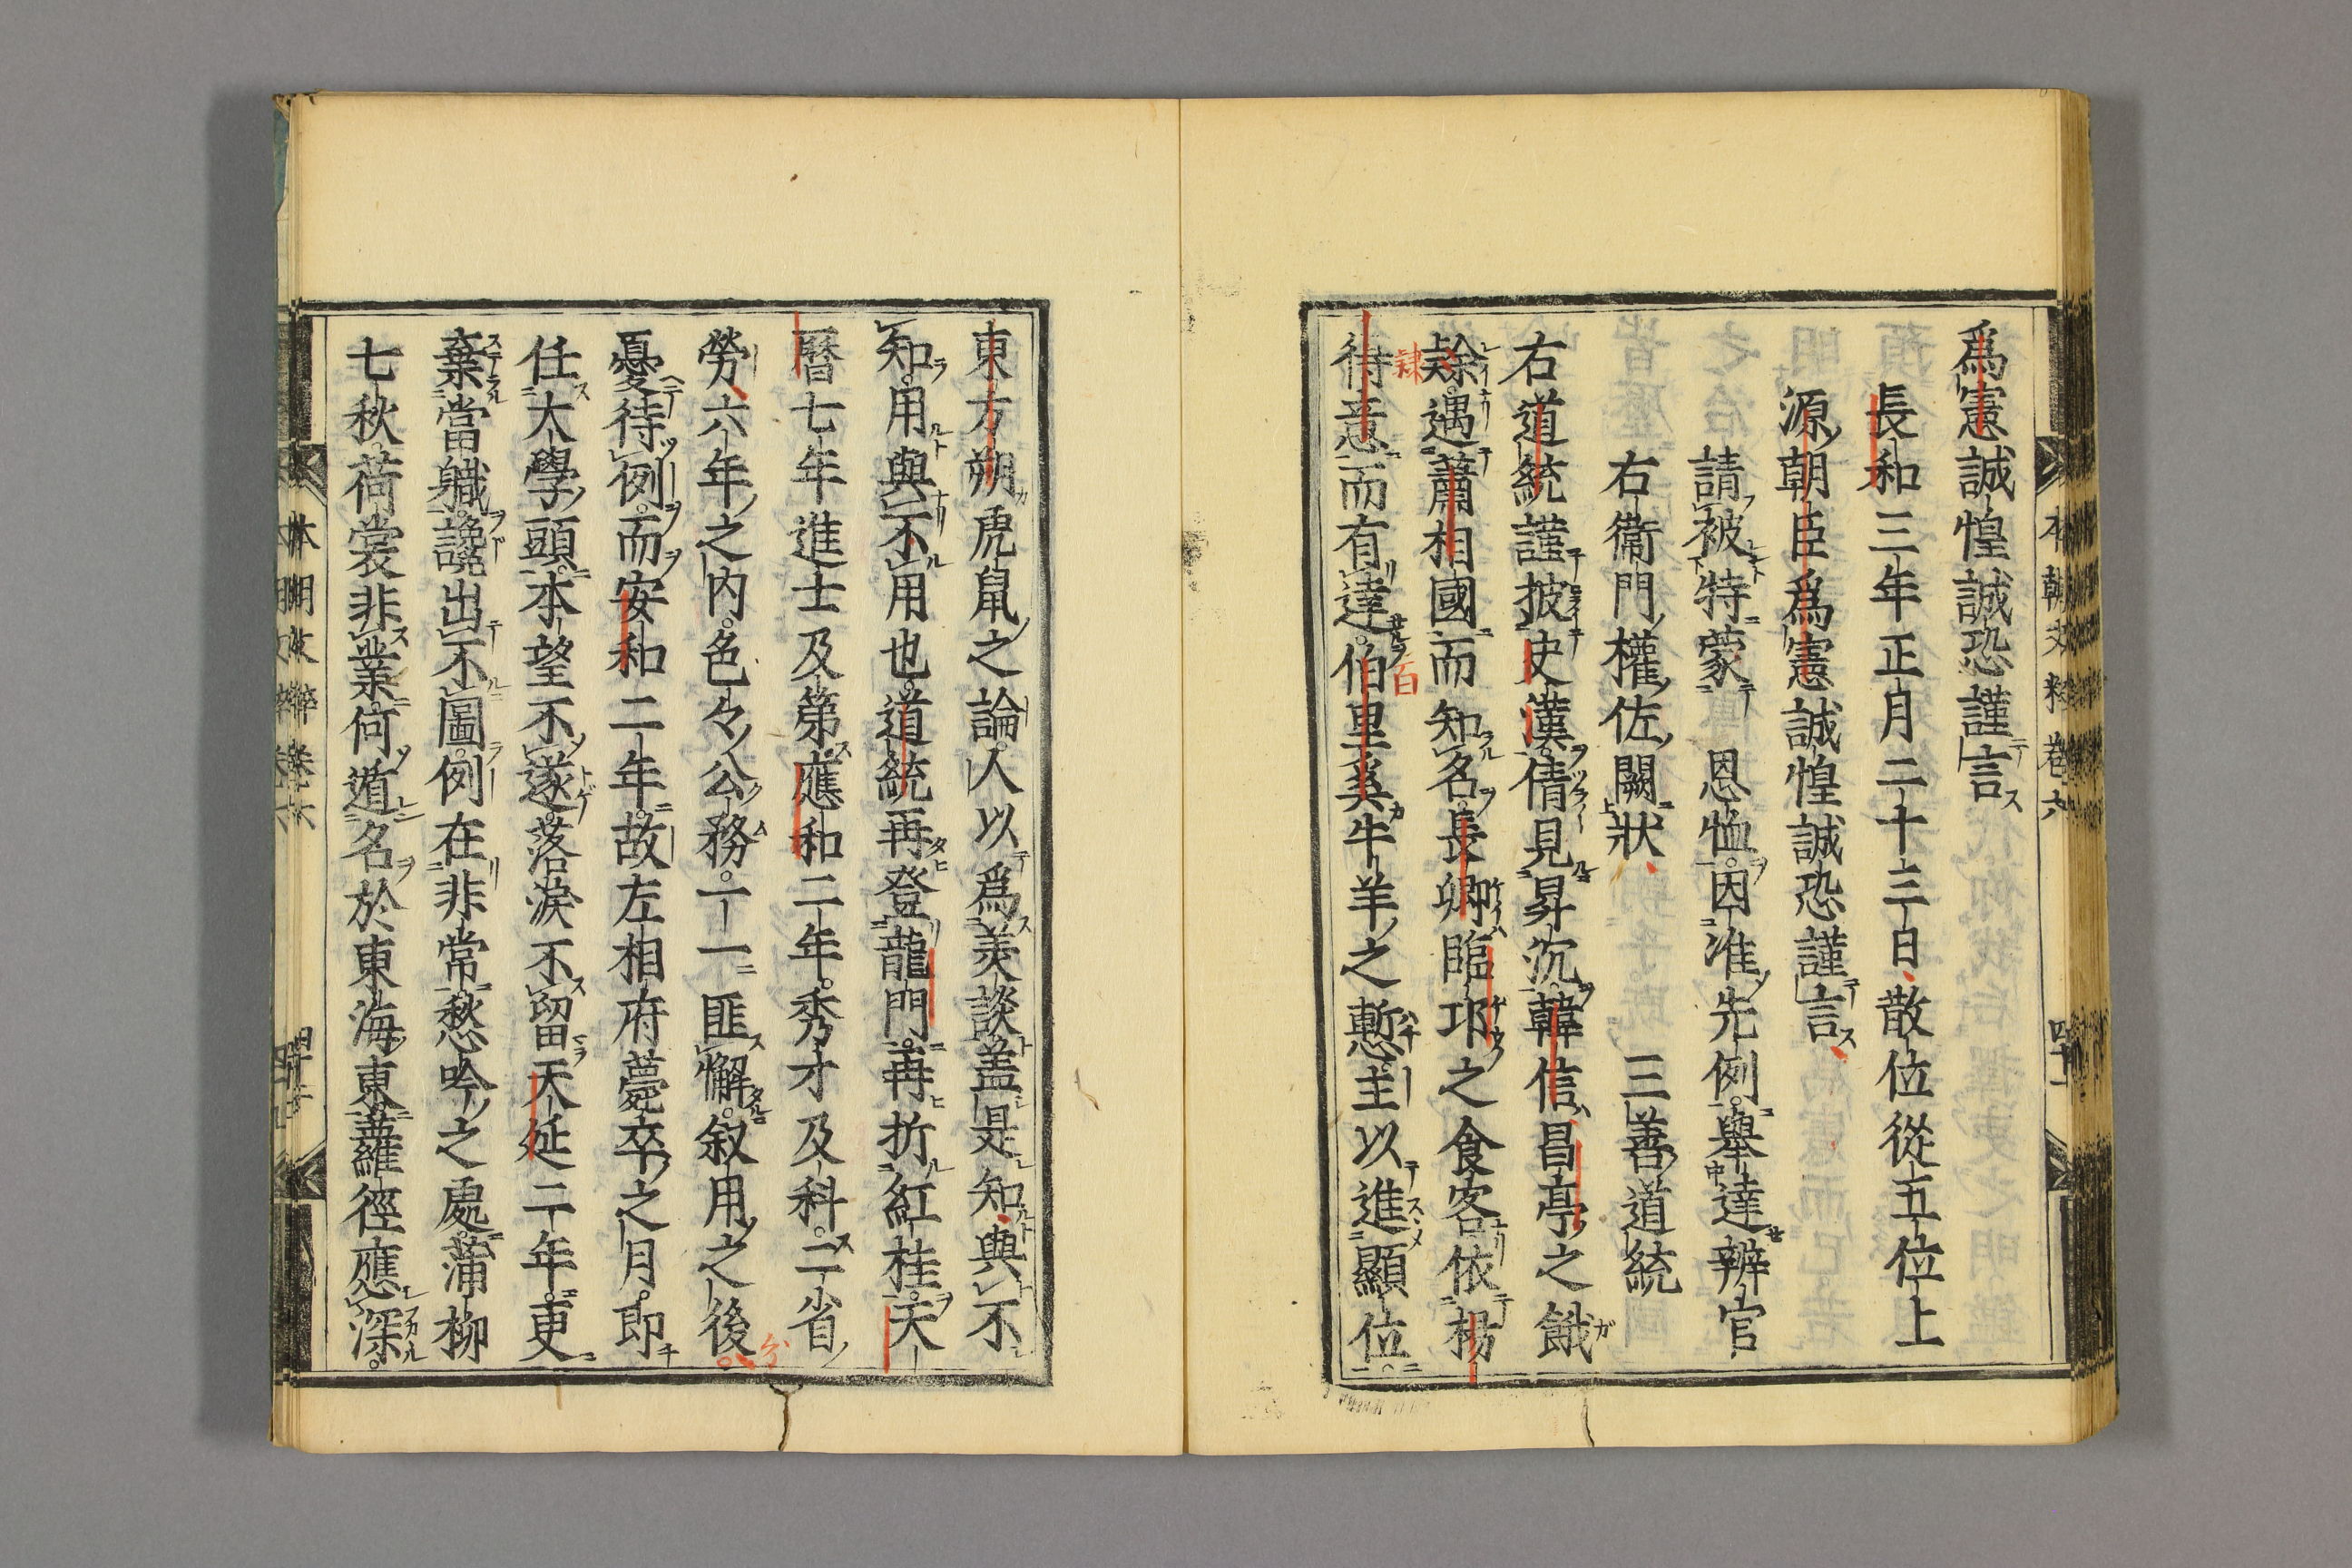 爲憲誠惶誠恐謹言
長和三年正月二十三日散位從五位上
源朝臣爲憲誠惶誠恐謹言
請被特蒙 恩恤因准先例擧達辨官
右衞門權佐闕狀 三善道統
右道統謹披史漢倩見昇沉韓信昌亭之餓
隸遇蕭相國而知名長卿臨邛之食客依楊
得意而有達伯里奚牛羊之慙主以進顯位
東方朔虎鼠之論人以爲美談盖是知與不
知用與不用也道統再登龍門再折紅桂天
曆七年進士及第應和二年秀才及科二省
勞六年之内色々公務一一匪懈叙用之後
憂待例而安和二年故左相府薨卒之月即
任大學頭本望不遂落淚不留天延二年更
棄當職讒出不圖例在非常愁吟之處蒲柳
七秋荷裳非業何遁名於東海東蘿徑應深
隷
百
本朝文粹卷六